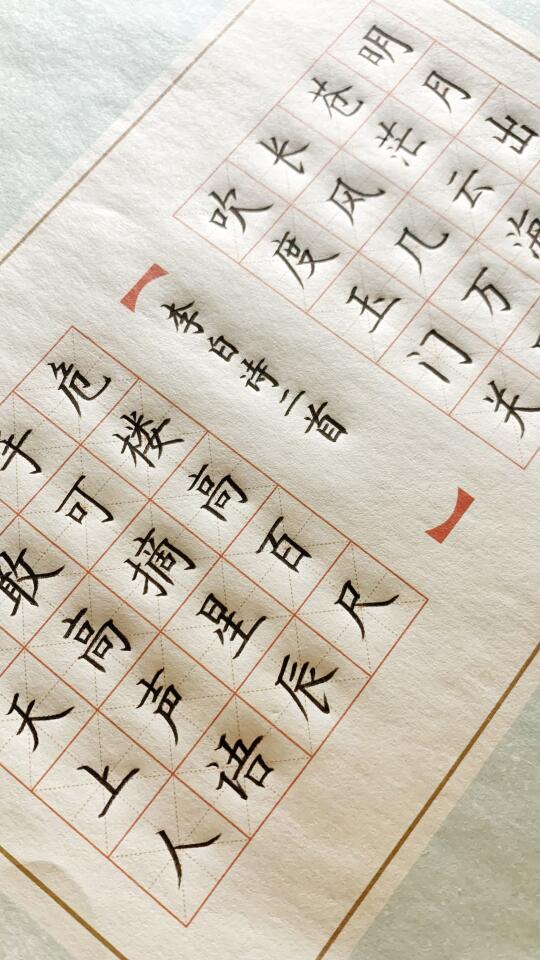 明月出
苍茫云海
长风几万
吹度玉门关
【李白诗二首】
危楼高百尺
手可摘星辰
敢高声语
天上人